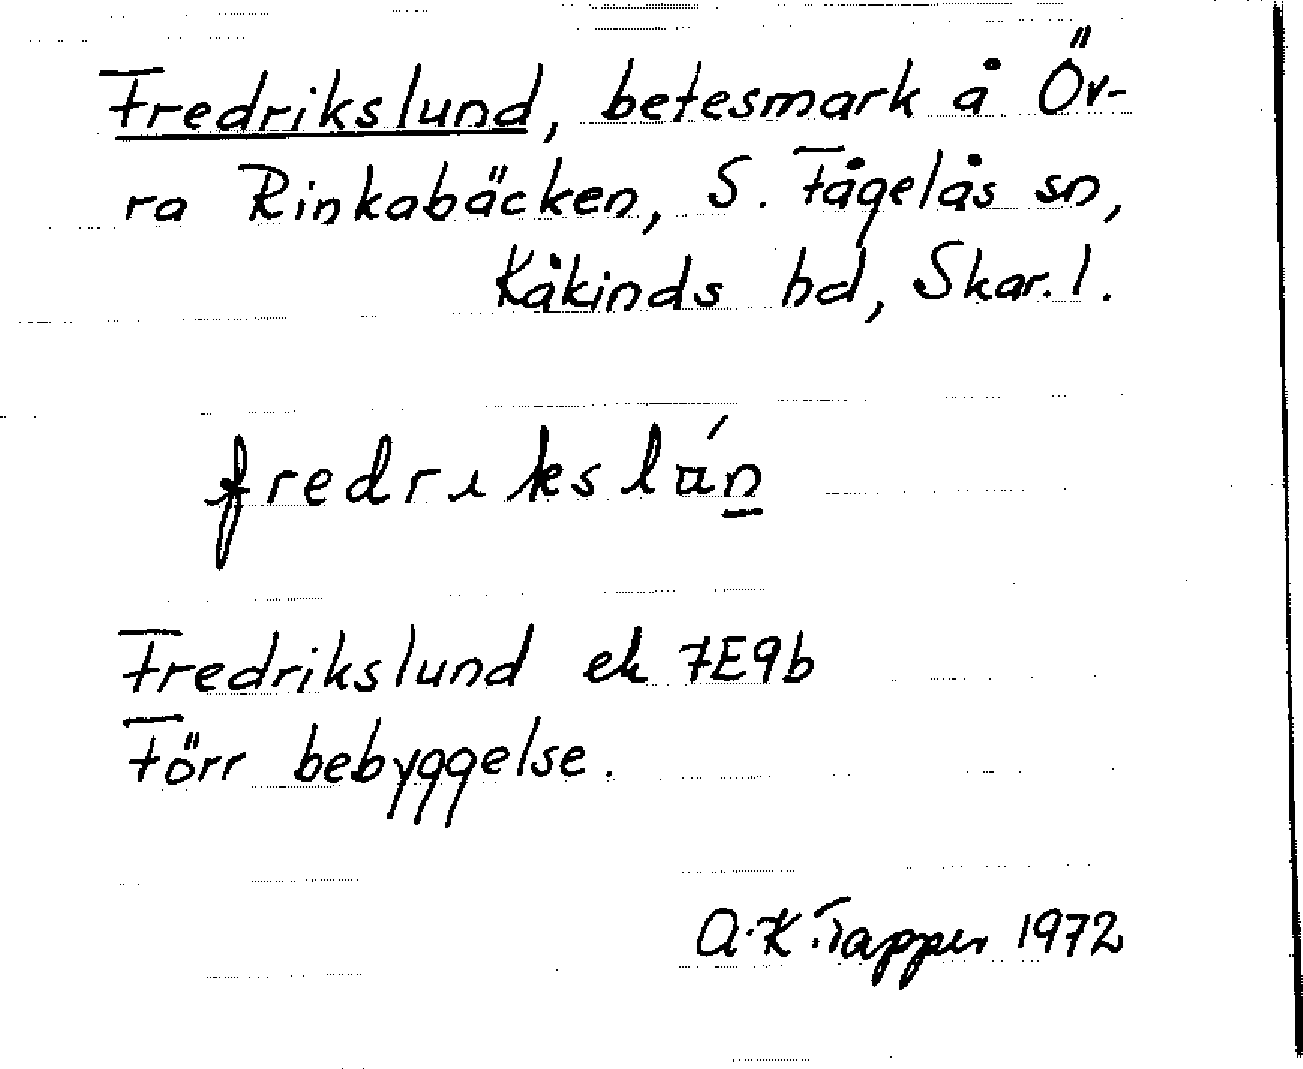 Fredrikslund, betesmark å Öv-
ra Rinkabäcken, S. Fågelås sn,
Kåkinds hd, Skar. l.
Fredrikslund ek 7E9b
Förr bebyggelse.
A-K. Tapper 1972